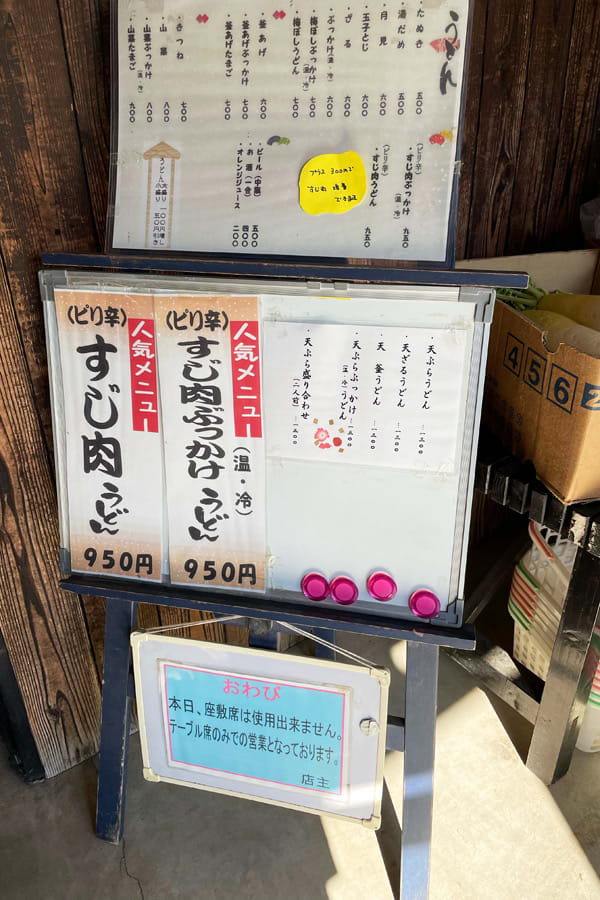 うどん
・たぬき 五〇〇
・湯だめ 五〇〇
・月見 六〇〇
・玉子とじ 六〇〇
・ざる 六〇〇
・ぶっかけ(温・冷) 六〇〇
・梅ぼしぶっかけ(温・冷) 七〇〇
・梅ぼしうどん 七〇〇
・釜あげ 六〇〇
・釜あげぶっかけ 七〇〇
・釜あげたまご 七〇〇
・きつね 七〇〇
・山菜 八〇〇
・山菜ぶっかけ(温・冷) 八〇〇
・山菜たまご 九〇〇
(ピリ辛)
・すじ肉ぶっかけ(温・冷) 九五〇
(ピリ辛)
・すじ肉うどん 九五〇
プラス 300円で
すじ肉 増量
できます
・ビール(中瓶) 五〇〇
・お酒(一合) 四〇〇
・オレンジジュース 二〇〇
うどん大盛り 一〇〇円増し
うどん小盛り 五〇円引き
人気メニュー
(ピリ辛)
すじ肉うどん
950円
人気メニュー
(ピリ辛)
すじ肉ぶっかけうどん
(温・冷)
950円
・天ぷらうどん …一三〇〇
・天ざるうどん …一三〇〇
・天釜うどん …一三〇〇
・天ぷらぶっかけうどん(温・冷) …一三〇〇
・天ぷら盛り合わせ(二人前) …一三〇〇
4562
おわび
本日、座敷席は使用出来ません。
テーブル席のみでの営業となっております。
店主